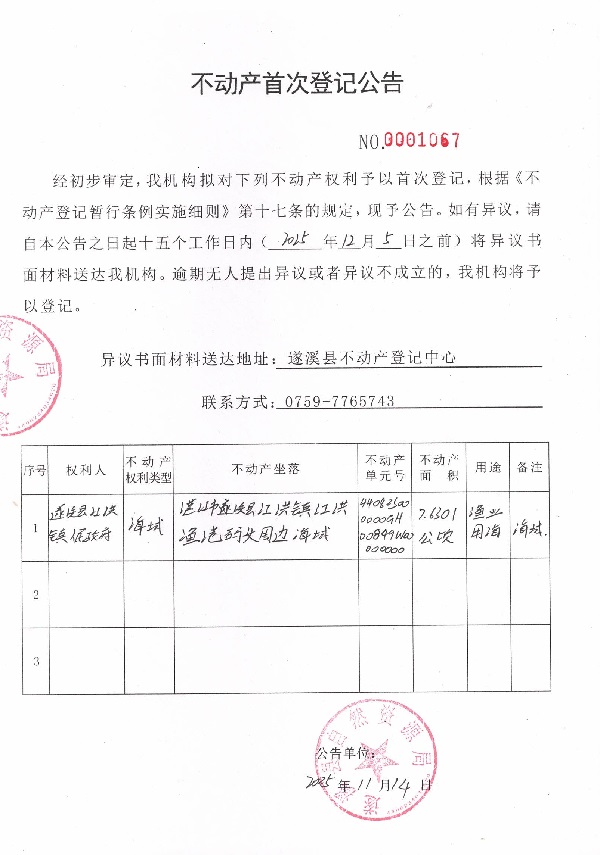 不动产首次登记公告
NO.0001067
经初步审定，我机构拟对下列不动产权利予以首次登记，根据《不
动产登记暂行条例实施细则》第十七条的规定，现予公告。如有异议，请
自本公告之日起十五个工作日内（2025年12月5日之前）将异议书
面材料送达我机构。逾期无人提出异议或者异议不成立的，我机构将予
以登记。
异议书面材料送达地址：遂溪县不动产登记中心
联系方式：0759-7765743
序号 权利人 不动产权利类型 不动产坐落 不动产单元号 不动产面积 用途 备注
1 遂溪县江洪镇人民政府 海域 湛江市遂溪县江洪镇江洪渔港码头周边海域 440823000000GH00899W00000000 7.6301公顷 渔业用海 海域.
2
3
公告单位：
2025年11月14日
遂溪县自然资源局